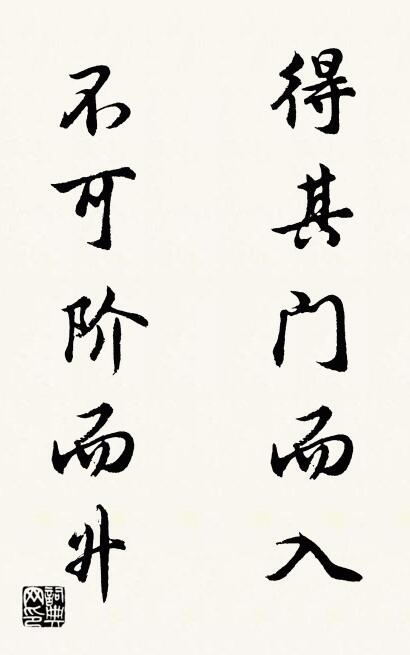 得其门而入
不可阶而升
詞典
网印